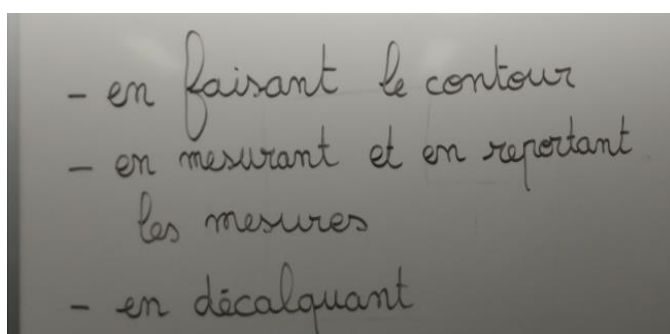 - en faisant le contour
- en mesurant et en reportant
les mesures
- en décalquant